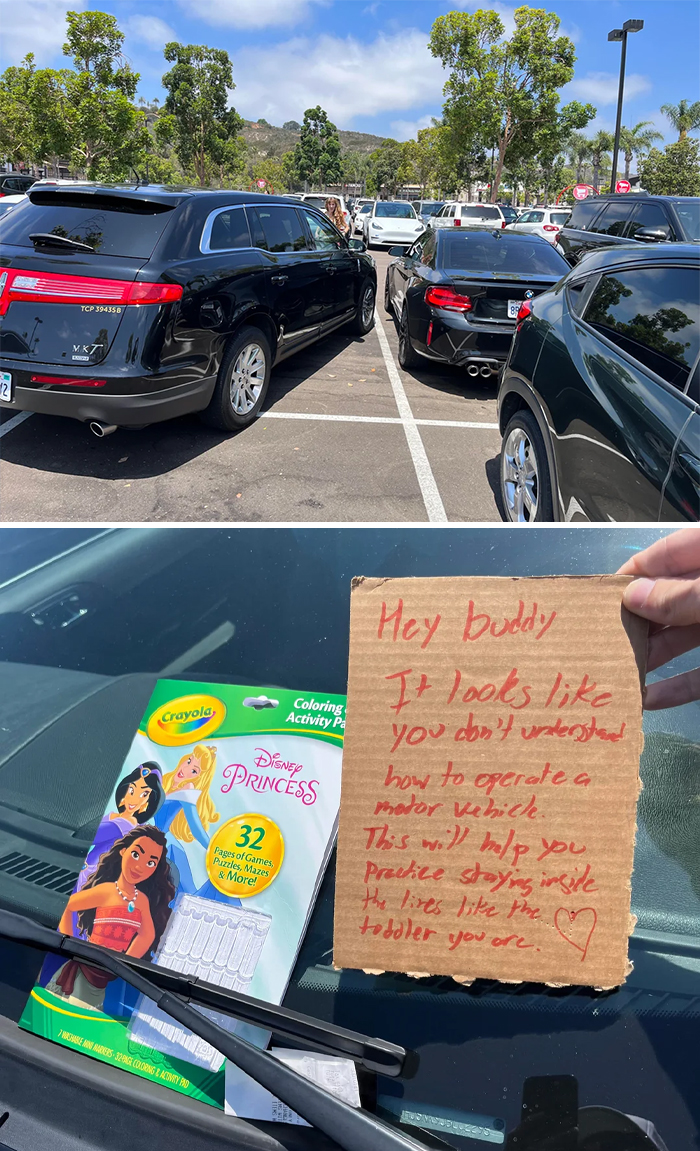 TCP 39435B
MKT
Hey buddy
It looks like
you don't understand
how to operate a
motor vehicle.
This will help you
Practice staying inside
the lines like the
toddler you are.
Crayola
Coloring
Activity Pa
Disney
PRINCESS
32
Pages of Games,
Puzzles, Mazes
& More!
7 WASHABLE MINI MARKERS · 32-PAGE COLORING & ACTIVITY PAD